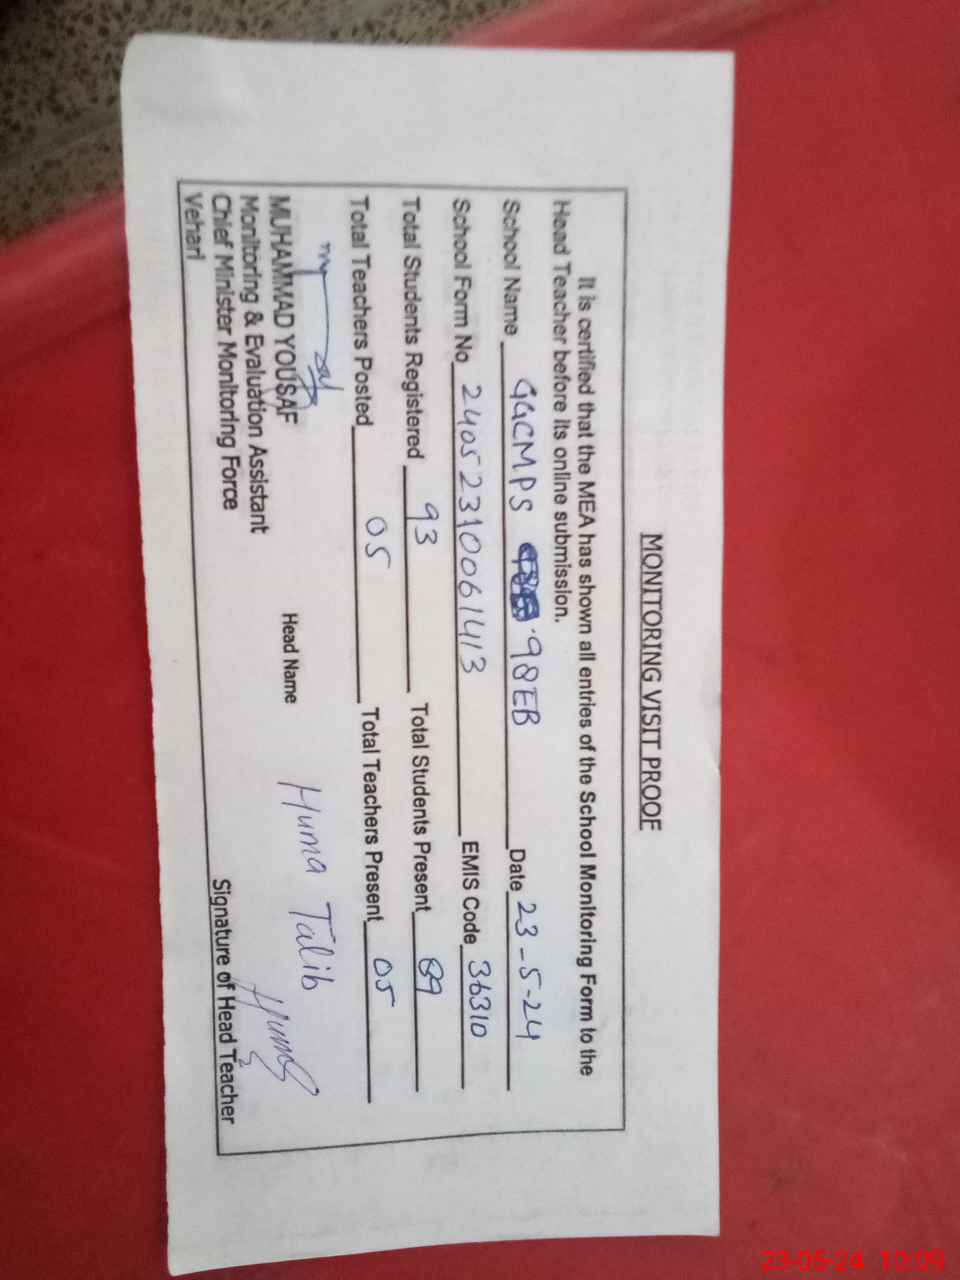 MONITORING VISIT PROOF
It is certified that the MEA has shown all entries of the School Monitoring Form to the
Head Teacher before its online submission.
School Name GGCMPS 98EB Date 23-5-24
School Form No 24052310061413 EMIS Code 36310
Total Students Registered 93 Total Students Present 89
Total Teachers Posted 05 Total Teachers Present 05
MUHAMMAD YOUSAF Head Name Huma Talib
Monitoring & Evaluation Assistant
Chief Minister Monitoring Force
Vehari Signature of Head Teacher
23-05-24 10:09